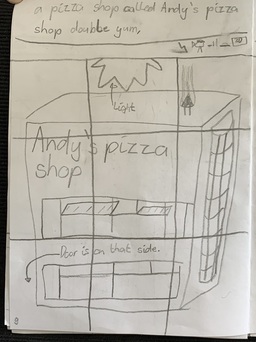 a pizza shop called Andy's pizza
shop double yum,
Light
Andy's pizza
shop
Door is on that side.